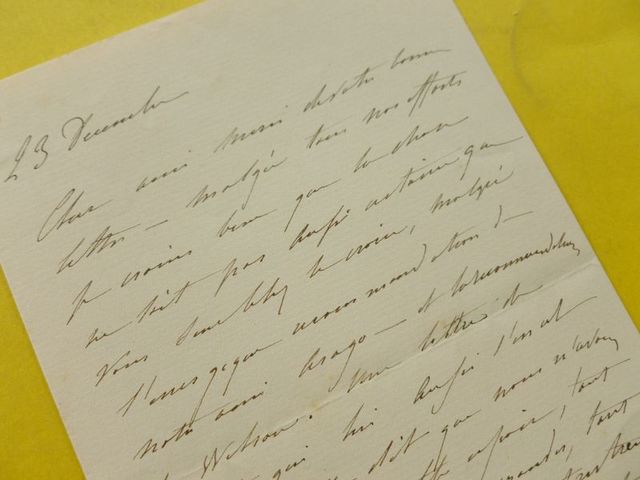 23 Decembre
Cher ami merci de votre bonne
lettre — malgré tous nos efforts
je crains bien que la chose
ne soit pas aussi certaine que
vous semblez le croire, malgré
l'énergique recommandation de
notre ami Arago — et la recommandation
de Wilson. Une lettre de
qui lui aussi s'en est
dit que nous n'avons
espoir, tout
tout